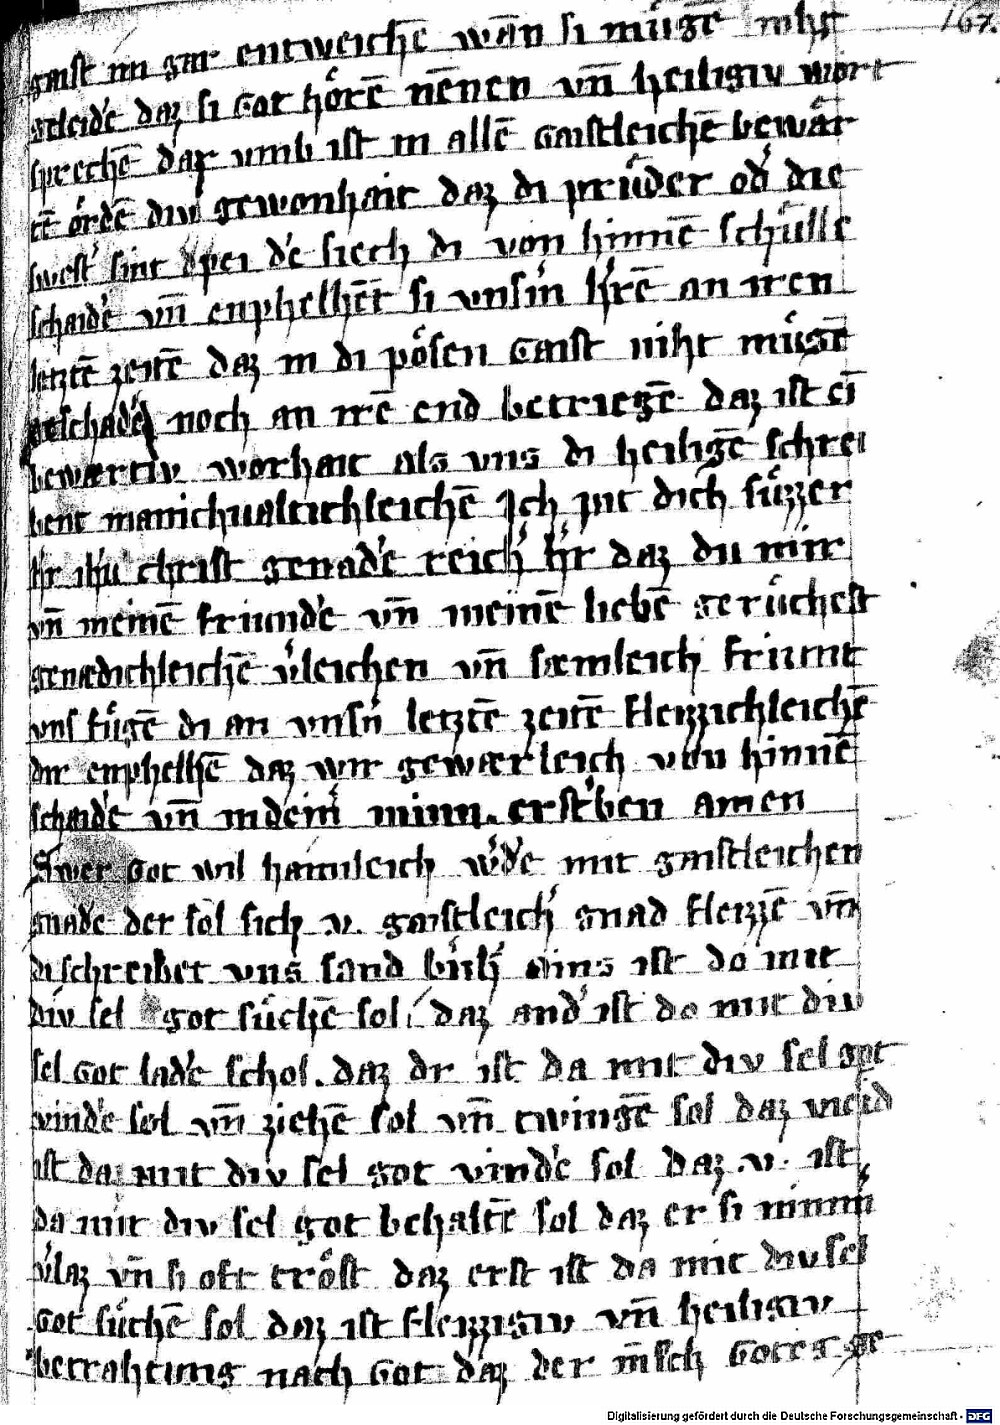 167.
gaist im gar entweichē wan si mügē niht
geleidē daz si got hörē nēnen vn̄ heiligiv wort
sprechē dar vmb ist in allē gaistleichē bewär
tē ördē div gewonhait daz di prüder od die
swest sint pei dē siech di von hinnē schulle
schaidē vn̄ enphelhēt si vnsin hrē an iren
letztē zeitē daz in di pösen gaist niht mügē
geschadē noch an irē end betriegē daz ist ei
bewærtiv worhait als vns di heiligē schrei
bent manichualtichleichē Ich pit dich süzzer
hr ihu christ genadē reich hr daz du mir
vn̄ meinē friundē vn̄ meinē liebē gerüchest
genædichleichē v̓leichen vn̄ sæmleich friunt
vns fügē di an vnsn letztē zeitē fleizzichleichē
dir enphelhē daz wir gewærleich von hinnē
schaidē vn̄ in deiner minn. ersterben amen
Swer got wil haimleich wdē mit gaistleichen
gnadē der sol sich .v. gaistleich gnad fleizzē vn̄
di schreibet vns sand ains ist do mit
div sel got süchē sol / daz and ist do mit div
sel got ladē schol. daz dr ist da mit div sel got
vindē sol vn̄ ziehē sol vn̄ twingē sol daz vierd
ist da mit div sel got vindē sol daz .v. ist
da mit div sel got behaltē sol daz er si nimm
v̓laz vn̄ si oft tröst daz erst ist da mit div sel
got süchē sol daz ist fleizzigiv vn̄ heiligiv
betrahtung nach got daz der mēsch gotes ge
Digitalisierung gefördert durch die Deutsche Forschungsgemeinschaft - DFG